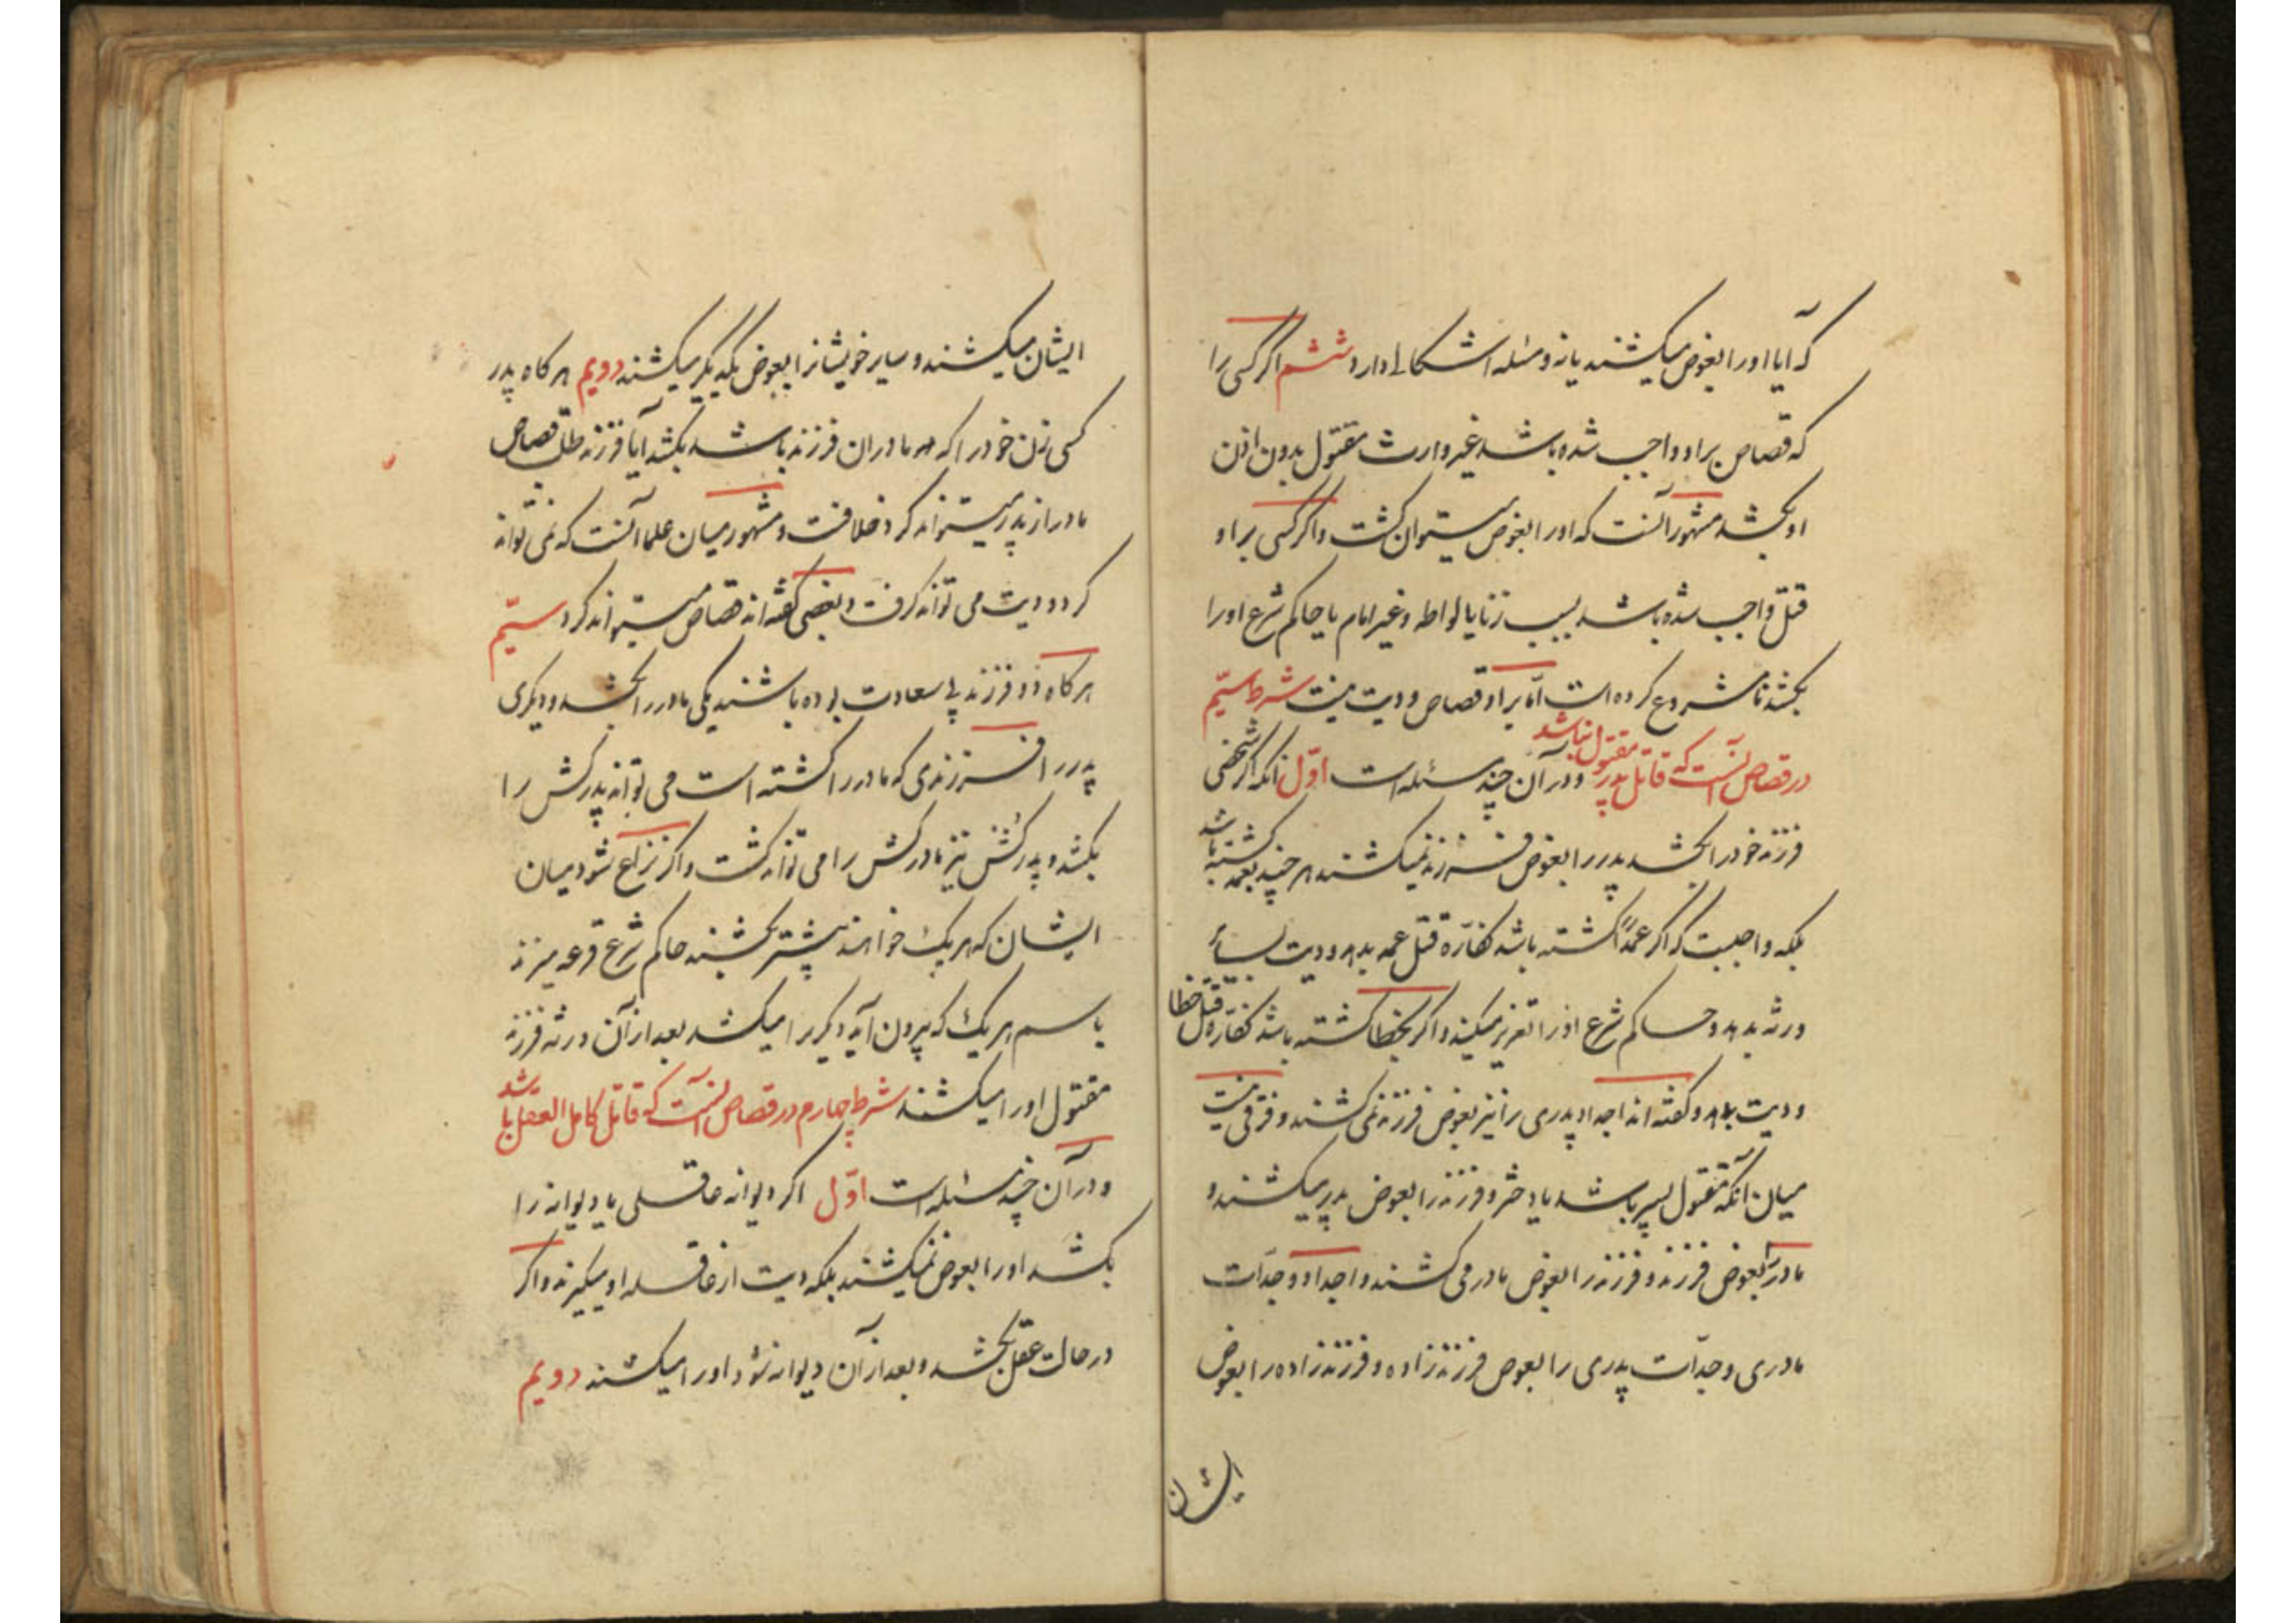 که آیا او را بعوض میکشند یا نه و مسئله اشکالی دارد ششم اگر کسی را
که قصاص بر او واجب شده باشد غیر وارث مقتول بدون اذن
او بکشد مشهور آنست که او را بعوض میتوان کشت و اگر کسی بر او
قتل واجب شده باشد بسبب زنا یا لواطه و غیر امام یا حاکم شرع او را
بکشد نامشروع کرده است امّا بر او قصاص و دیت نیست شرط سیّم
در قصاص آنست که قاتل پدر مقتول نباشد و در آن چند مسئله است اوّل آنکه اگر شخصی
فرزند خود را بکشد پدر را بعوض فرزند نمیکشند هر چند بعمد کشته باشد
بلکه واجبست که اگر عمداً کشته باشد کفّاره قتل عمد بدهد و دیت بسایر
ورثه بدهد و حاکم شرع او را تعزیر میکند و اگر بخطا کشته باشد کفّاره قتل خطا
و دیت بدهد و گفته اند اجداد پدری را نیز بعوض فرزند نمی کشند و فرقی نیست
میان آنکه مقتول پسر باشد یا دختر و فرزند را بعوض پدر میکشند و
مادر را بعوض فرزند و فرزند را بعوض مادر می کشند و اجداد و جدّات
مادری و جدّات پدری را بعوض فرزند زاده و فرزند زاده را بعوض
ایشان
ایشان میکشند و سایر خویشانرا بعوض یکدیگر میکشند دویم هر کاه پدر
کسی زن خود را که مادر آن فرزند باشد بکشد آیا فرزند طلب قصاص
مادر از پدر میتواند کرد خلافست و مشهور میان علما آنست که نمی تواند
کرد و دیت می تواند کرفت و بعضی گفته اند قصاص میتواند کرد سیّم
هر کاه دو فرزند بی سعادت بوده باشند یکی مادر را بکشد و دیکری
پدر را فرزندی که مادر را کشته است می تواند پدرکش را
بکشد و پدرکش نیز مادرکش را می تواند کشت و اکر نزاع شود میان
ایشان که هر یک خواهند پیشتر بکشند حاکم شرع قرعه میزند
باسم هر یک که بیرون آید دیگری را میکشد بعد از آن ورثه فرزند
مقتول او را میکشند شرط چهارم در قصاص آنست که قاتل کامل العقل باشد
و در آن چند مسئله است اوّل اکر دیوانه عاقلی یا دیوانه را
بکشد او را بعوض نمیکشند بلکه دیت از عاقله او میکیرند و اکر
در حالت عقل بکشد و بعد از آن دیوانه شود او را میکشند دویم